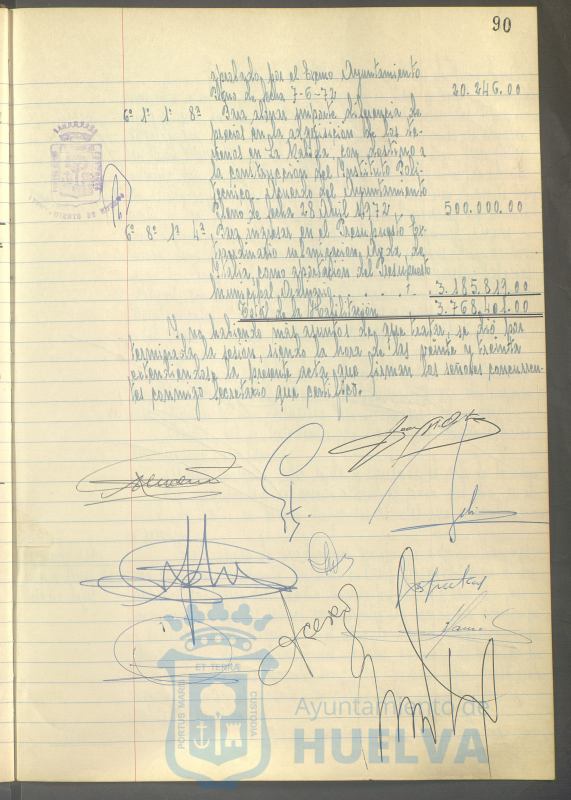 90
aprobado por el Excmo Ayuntamiento
Pleno de fecha 7-6-72 20.246.00
6º 1º 1º 8º Para abonar importe diferencia de
precios en la adquisición de los te-
rrenos en La Rábida, con destino a
la construcción del Instituto Poli-
técnico, acuerdo del Ayuntamiento
Pleno de fecha 28 Abril 1972 500.000.00
6º 8º 1º 4º Para ingresar en el Presupuesto Ex-
traordinario urbanización
como aportación del Presupuesto
Municipal Ordinario . . . . . 3.185.819.00
Total de la Habilitación 3.768.401.00
Y no habiendo más asuntos de que tratar, se dió por
terminada la sesión, siendo la hora de las veinte y treinta
extendiéndose la presente acta que firman los señores concurren-
tes conmigo Secretario que certifico.
ET TERRÆ
PORTUS MARIS
CUSTODIA
Ayuntamiento de
HUELVA